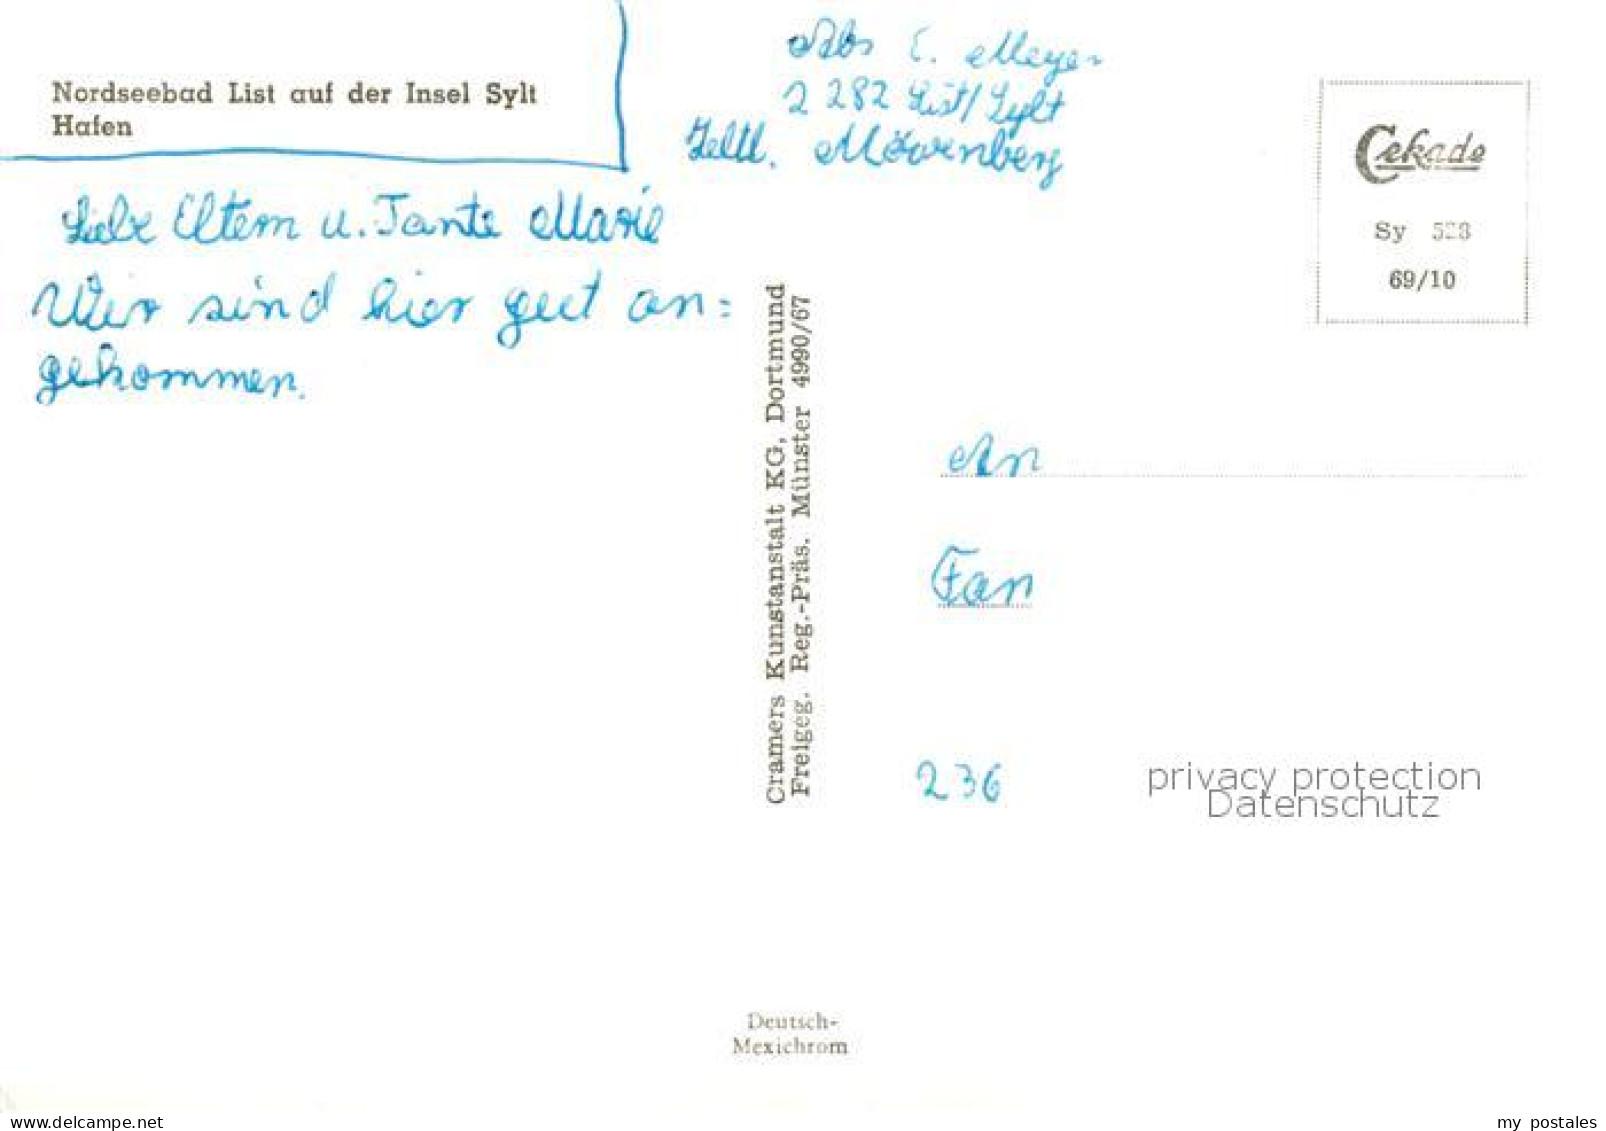 Nordseebad List auf der Insel Sylt
Hafen
Abs E. Meyer
2282 List/Sylt
Zeltl. Möwenberg
Liebe Eltern u. Tante Marie
Wir sind hier gut an=
gekommen.
Cekade
Sy 528
69/10
Cramers Kunstanstalt KG, Dortmund
Freigeg. Reg.-Präs. Münster 4990/67
An
Fam
236
privacy protection
Datenschutz
Deutsch-
Mexichrom
www.delcampe.net
my_postales